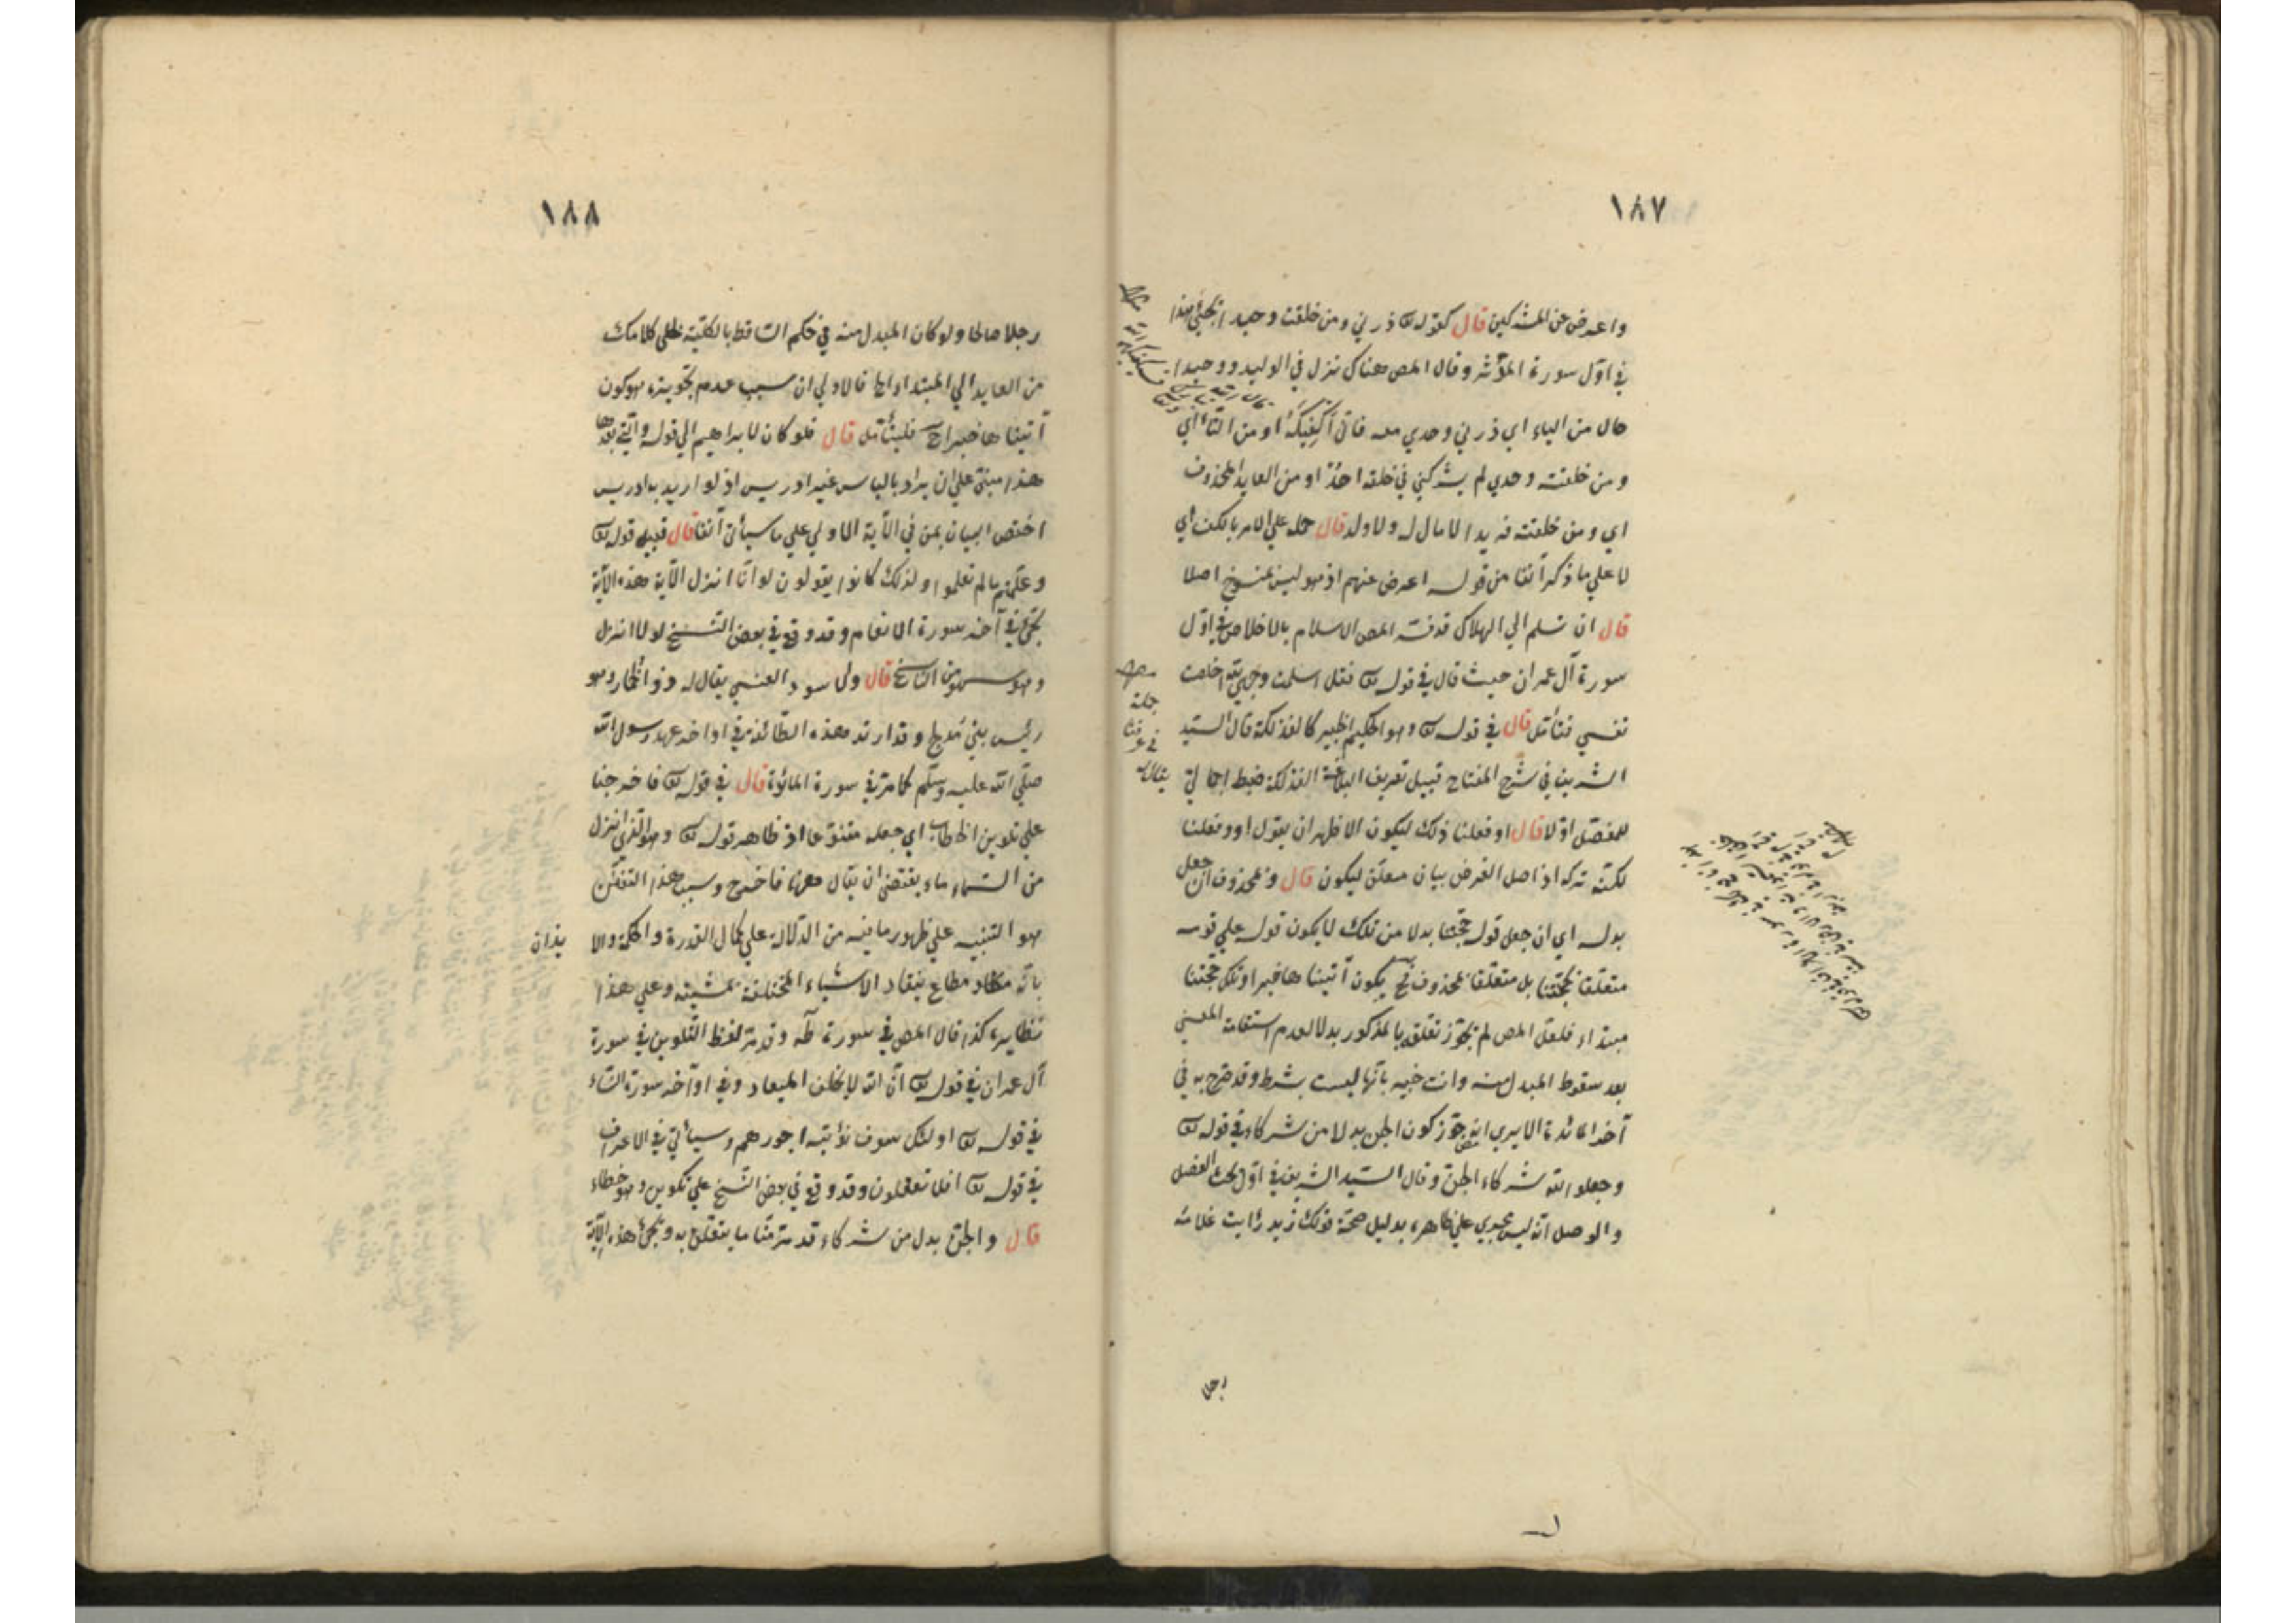 ١٨٧
واعرض عن المشركين قال كقوله تع ذرني ومن خلقت وحيدا يجئ هذا
في اول سورة المدثر وقال المص هناك نزل في الوليد ووحيدا
حال من الياء اي ذرني وحدي معه فاني اكفيكه او من التاء اي
ومن خلقته وحدي لم يشركني في خلقه احد او من العايد المحذوف
اي ومن خلقته فريدا لا مال له ولا ولد قال حمله على الامر بالكف اي
لا على ما ذكر آنفا من قوله اعرض عنهم اذ هو ليس بمنسوخ اصلا
قال ان تسلم الي الهلاك قد فسر المص الاسلام بالاخلاص في اول
سورة آل عمران حيث قال في قوله تع فقل اسلمت وجهي لله اخلصت
نفسي فتأمل قال في قوله تع وهو الحكيم الخبير كالفذلكة قال السيد
الشريف في شرح المفتاح قبيل تعريف البلاغة الفذلكة ضبط اجمالي
للمفصل اولا قال او فعلنا ذلك ليكون الاظهر ان يقول او وفعلنا
لكنه تركه اذ اصل الغرض بيان متعلق ليكون قال و محذوف ان جعل
بدله اي ان جعل قوله حجتنا بدلا من تلك لا يكون قوله علي قومه
متعلقا بحجتنا بل متعلقا بمحذوف ثم يكون آتيناها خبرا وتلك حجتنا
مبتداء فلعل المص لم يجوز تعلقه بالمذكور بدلا لعدم استقامة المعنى
بعد سقوط المبدل منه وانت خبير بأنها ليست بشرط وقد صرح به في
آخر المائدة الا يري انه جوز كون الجن بدلا من شركاء في قوله تع
وجعلوا لله شركاء الجن وقال السيد الشريف في اول بحث الفصل
والوصل انه ليس يجري علي ظاهره بدليل صحة قولك زيد رأيت غلامه
رجلا
١٨٨
رجلا صالحا ولو كان المبدل منه في حكم الساقط بالكلية لخلى كلامك
من العايد الي المبتدا واما فالاولي ان سبب عدم تجويزه هو كون
آتيناها خبرا ح فليتأمل قال فلو كان لابراهيم الي قوله والتي بعدها
هذا مبني علي ان يراد بالياس غير ادريس اذ لو اريد به ادريس
اختص البيان بمن في الآية الاولي علي ما سيأتي آنفا قال قبيل قوله تع
وعلمتم ما لم تعلموا ولذلك كانوا يقولون لو انا انزل الآية هذه الآية
يجئ في آخر سورة الانعام وقد وقع في بعض النسخ لولا انزل
وهو سهو من الناسخ قال والاسود العنسي يقال له ذو الخمار وهو
رئيس بني مدلج وقد ارتد هذه الطائفة في اواخر عهد رسول الله
صلي الله عليه وسلم كما مر في سورة المائدة قال في قوله تع فاخرجنا
علي تلوين الخطاب اي جعله متنوعا اذ ظاهر قوله تع وهو الذي انزل
من السماء ماء يقتضي ان يقال ههنا فاخرج وسبب هذا التفنن
هو التنبيه علي ظهور ما فيه من الدلالة علي كمال القدرة والحكمة والا
يذان
بانه مطاع ينقاد الاشياء المختلفة لمشيته وعلي هذا
نظايره كذا قال المص في سورة طه وقد مر لفظ التلوين في سورة
آل عمران في قوله تع ان الله لا يخلف الميعاد وفي اواخر سورة النساء
في قوله تع اولئك سوف نؤتيهم اجورهم وسيأتي في الاعراف
في قوله تع افلا تعقلون وقد وقع في بعض النسخ علي تكوين وهو خطاء
قال والجن بدل من شركاء قد مر منا ما يتعلق به ويجئ هذه الآية